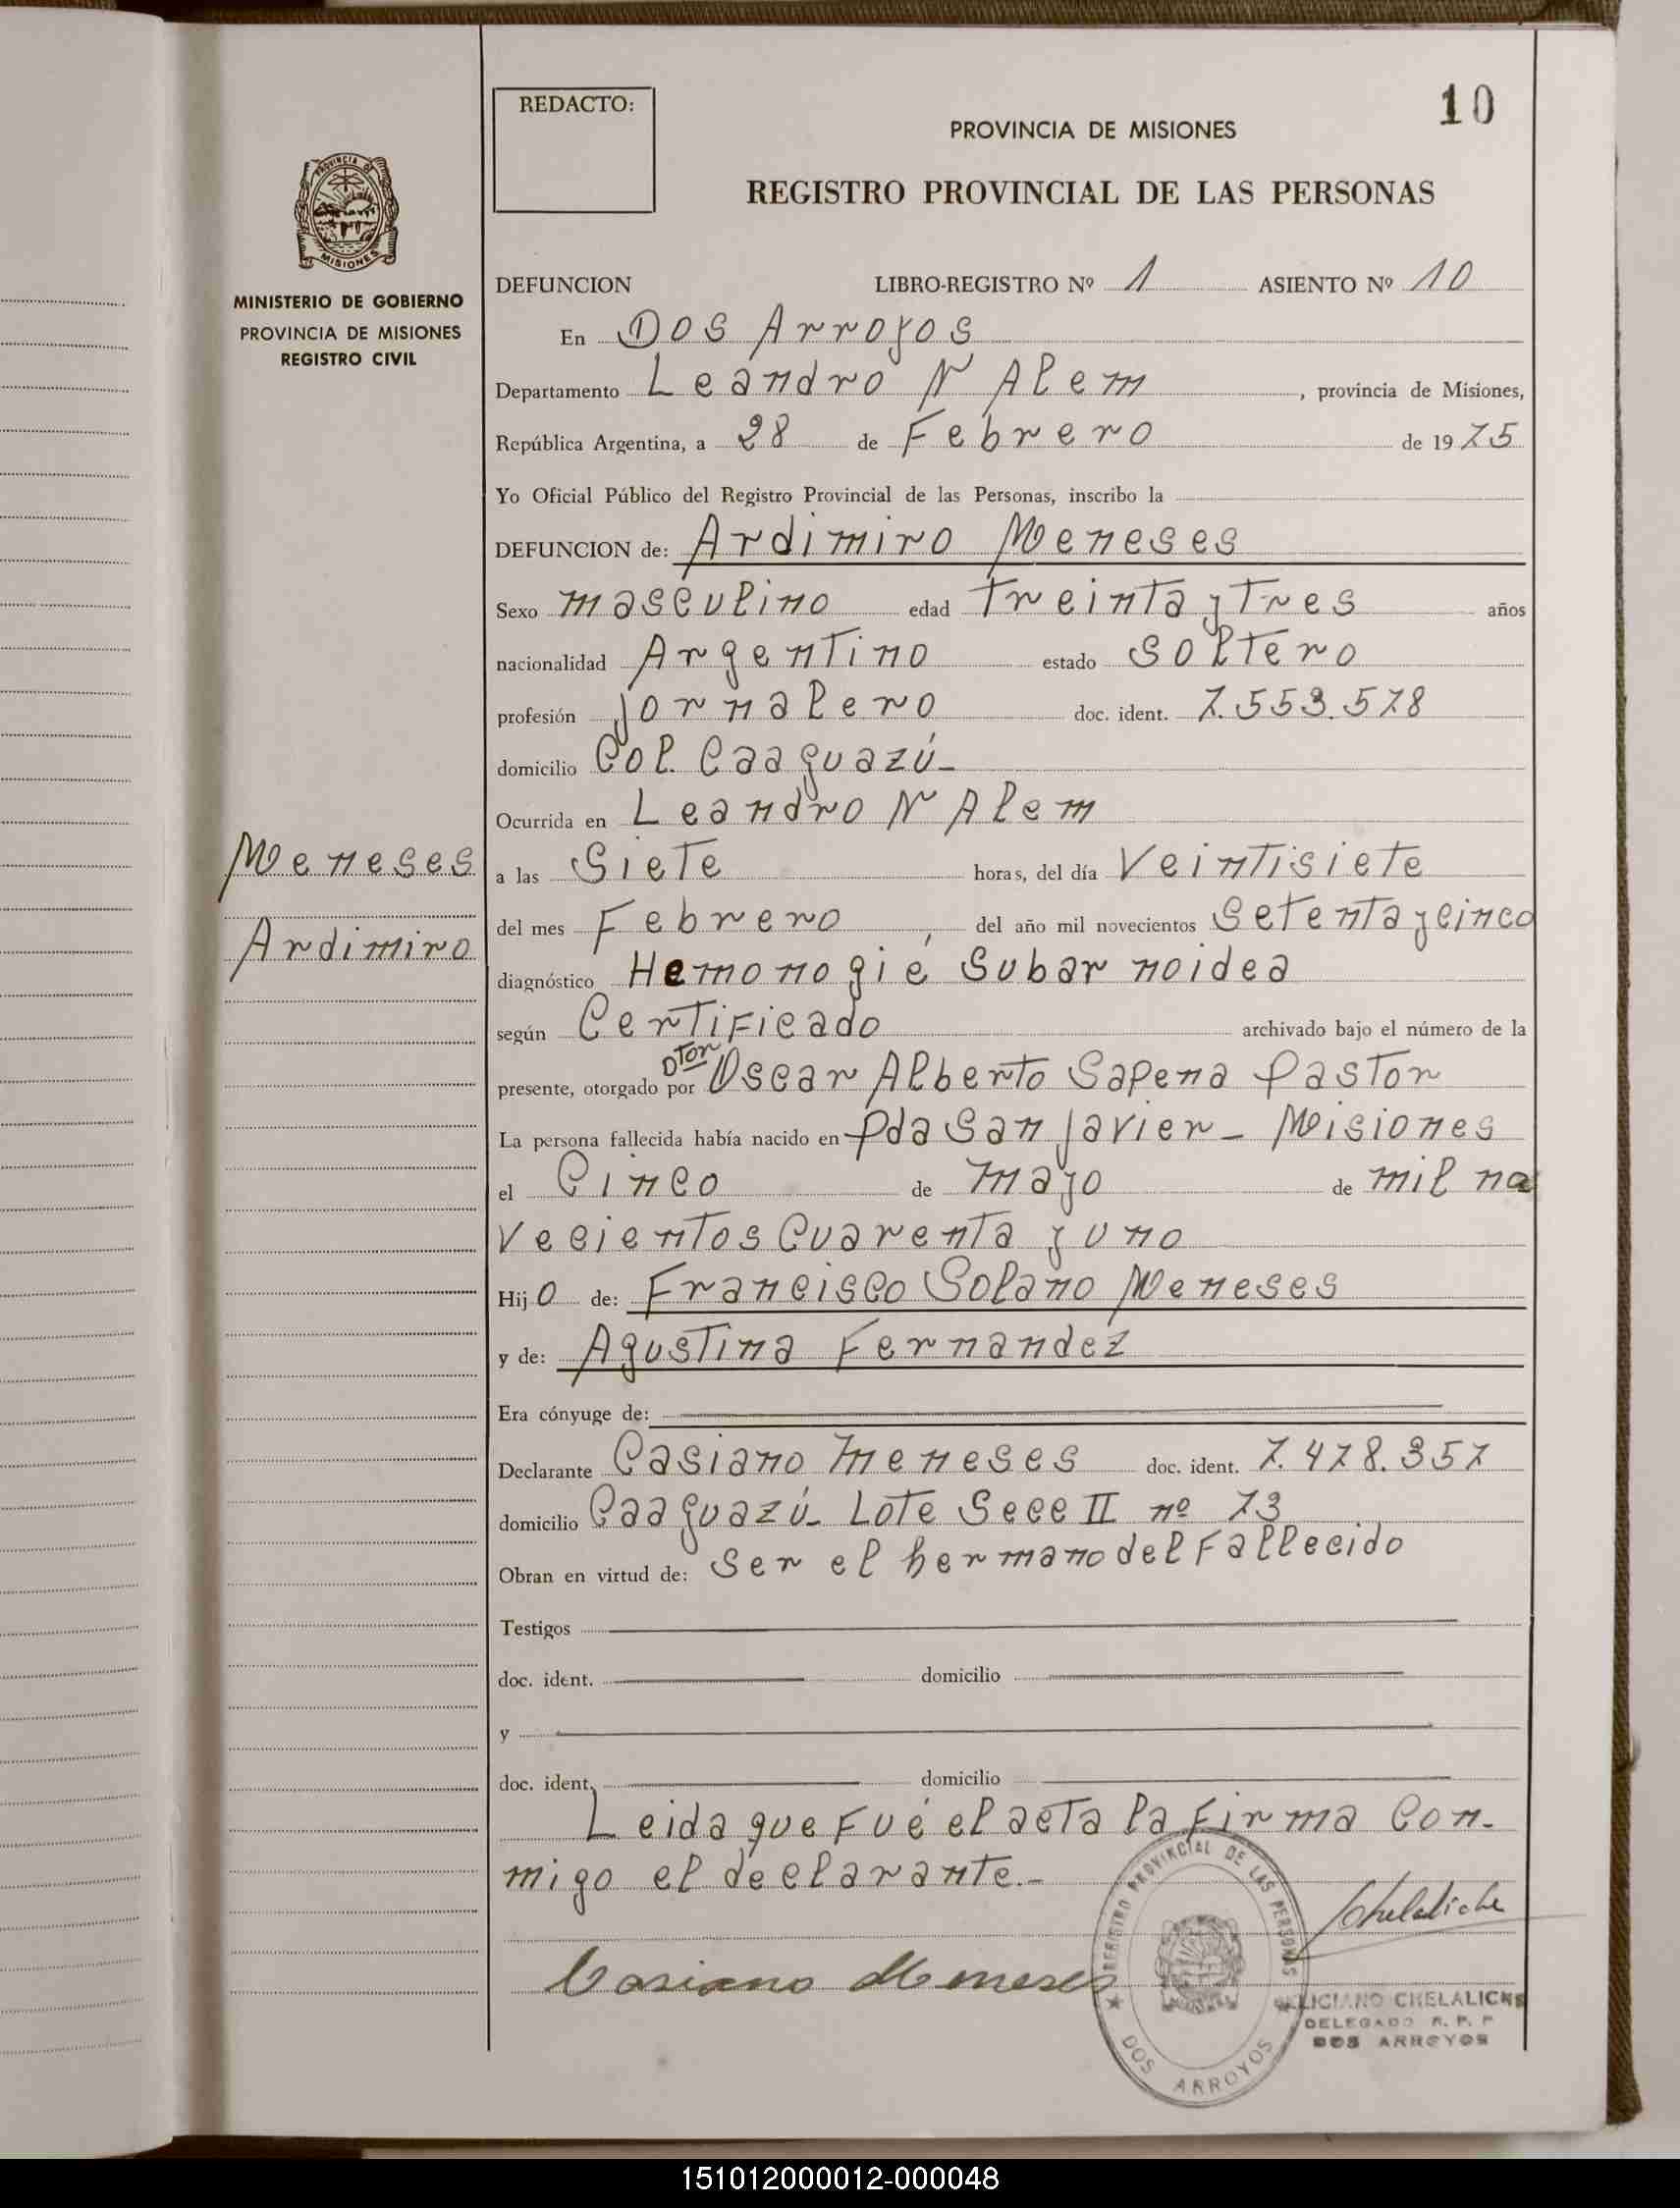 10
REDACTO:
PROVINCIA DE MISIONES
REGISTRO PROVINCIAL DE LAS PERSONAS
PROVINCIA DE
MISIONES
MINISTERIO DE GOBIERNO
PROVINCIA DE MISIONES
REGISTRO CIVIL
DEFUNCION LIBRO-REGISTRO Nº 1 ASIENTO Nº 10
En Dos Arroyos
Departamento Leandro N Alem, provincia de Misiones,
República Argentina, a 28 de Febrero de 1975
Yo Oficial Público del Registro Provincial de las Personas, inscribo la
DEFUNCION de: Ardimiro Meneses
Sexo masculino edad Treinta y Tres años
nacionalidad Argentino estado Soltero
profesión jornalero doc. ident. 7.553.578
domicilio Col. Caaguazú-
Ocurrida en Leandro N Alem
a las Siete horas, del día Veintisiete
del mes Febrero, del año mil novecientos Setenta y cinco
diagnóstico Hemonogié Subar noidea
según Certificado archivado bajo el número de la
presente, otorgado por Dtor Oscar Alberto Sapena Pastor
La persona fallecida había nacido en Pda San Javier - Misiones
el Cinco de Mayo de mil no
vecientos Cuarenta y uno
Hijo de: Francisco Solano Meneses
y de: Agustina Fernandez
Era cónyuge de:
Declarante Casiano Meneses doc. ident. 7.478.357
domicilio Caaguazú- Lote Secc II nº 73
Obran en virtud de: Ser el hermano del Fallecido
Testigos
doc. ident. domicilio
y
doc. ident. domicilio
Leida que Fué el acta la Firma con-
migo el declarante.-
Meneses
Ardimiro
Casiano Meneses
Chelaliche
REGISTRO PROVINCIAL DE LAS PERSONAS
DOS ARROYOS
DELEGADO R. P. P
DOS ARROYOS
151012000012-000048